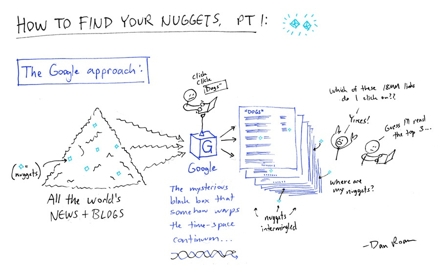 HOW TO FIND YOUR NUGGETS, PT 1:
The Google approach:
click
click
"Dogs"
"DOGS"
Which of these 18MM links
do I click on??
Yikes!
Guess I'll read
the top 3...
G
Google
( = nuggets)
Where are
my nuggets?
All the world's
NEWS + BLOGS
The mysterious
black box that
somehow warps
the time-space
continuum...
nuggets
intermingled
—Dan Roam